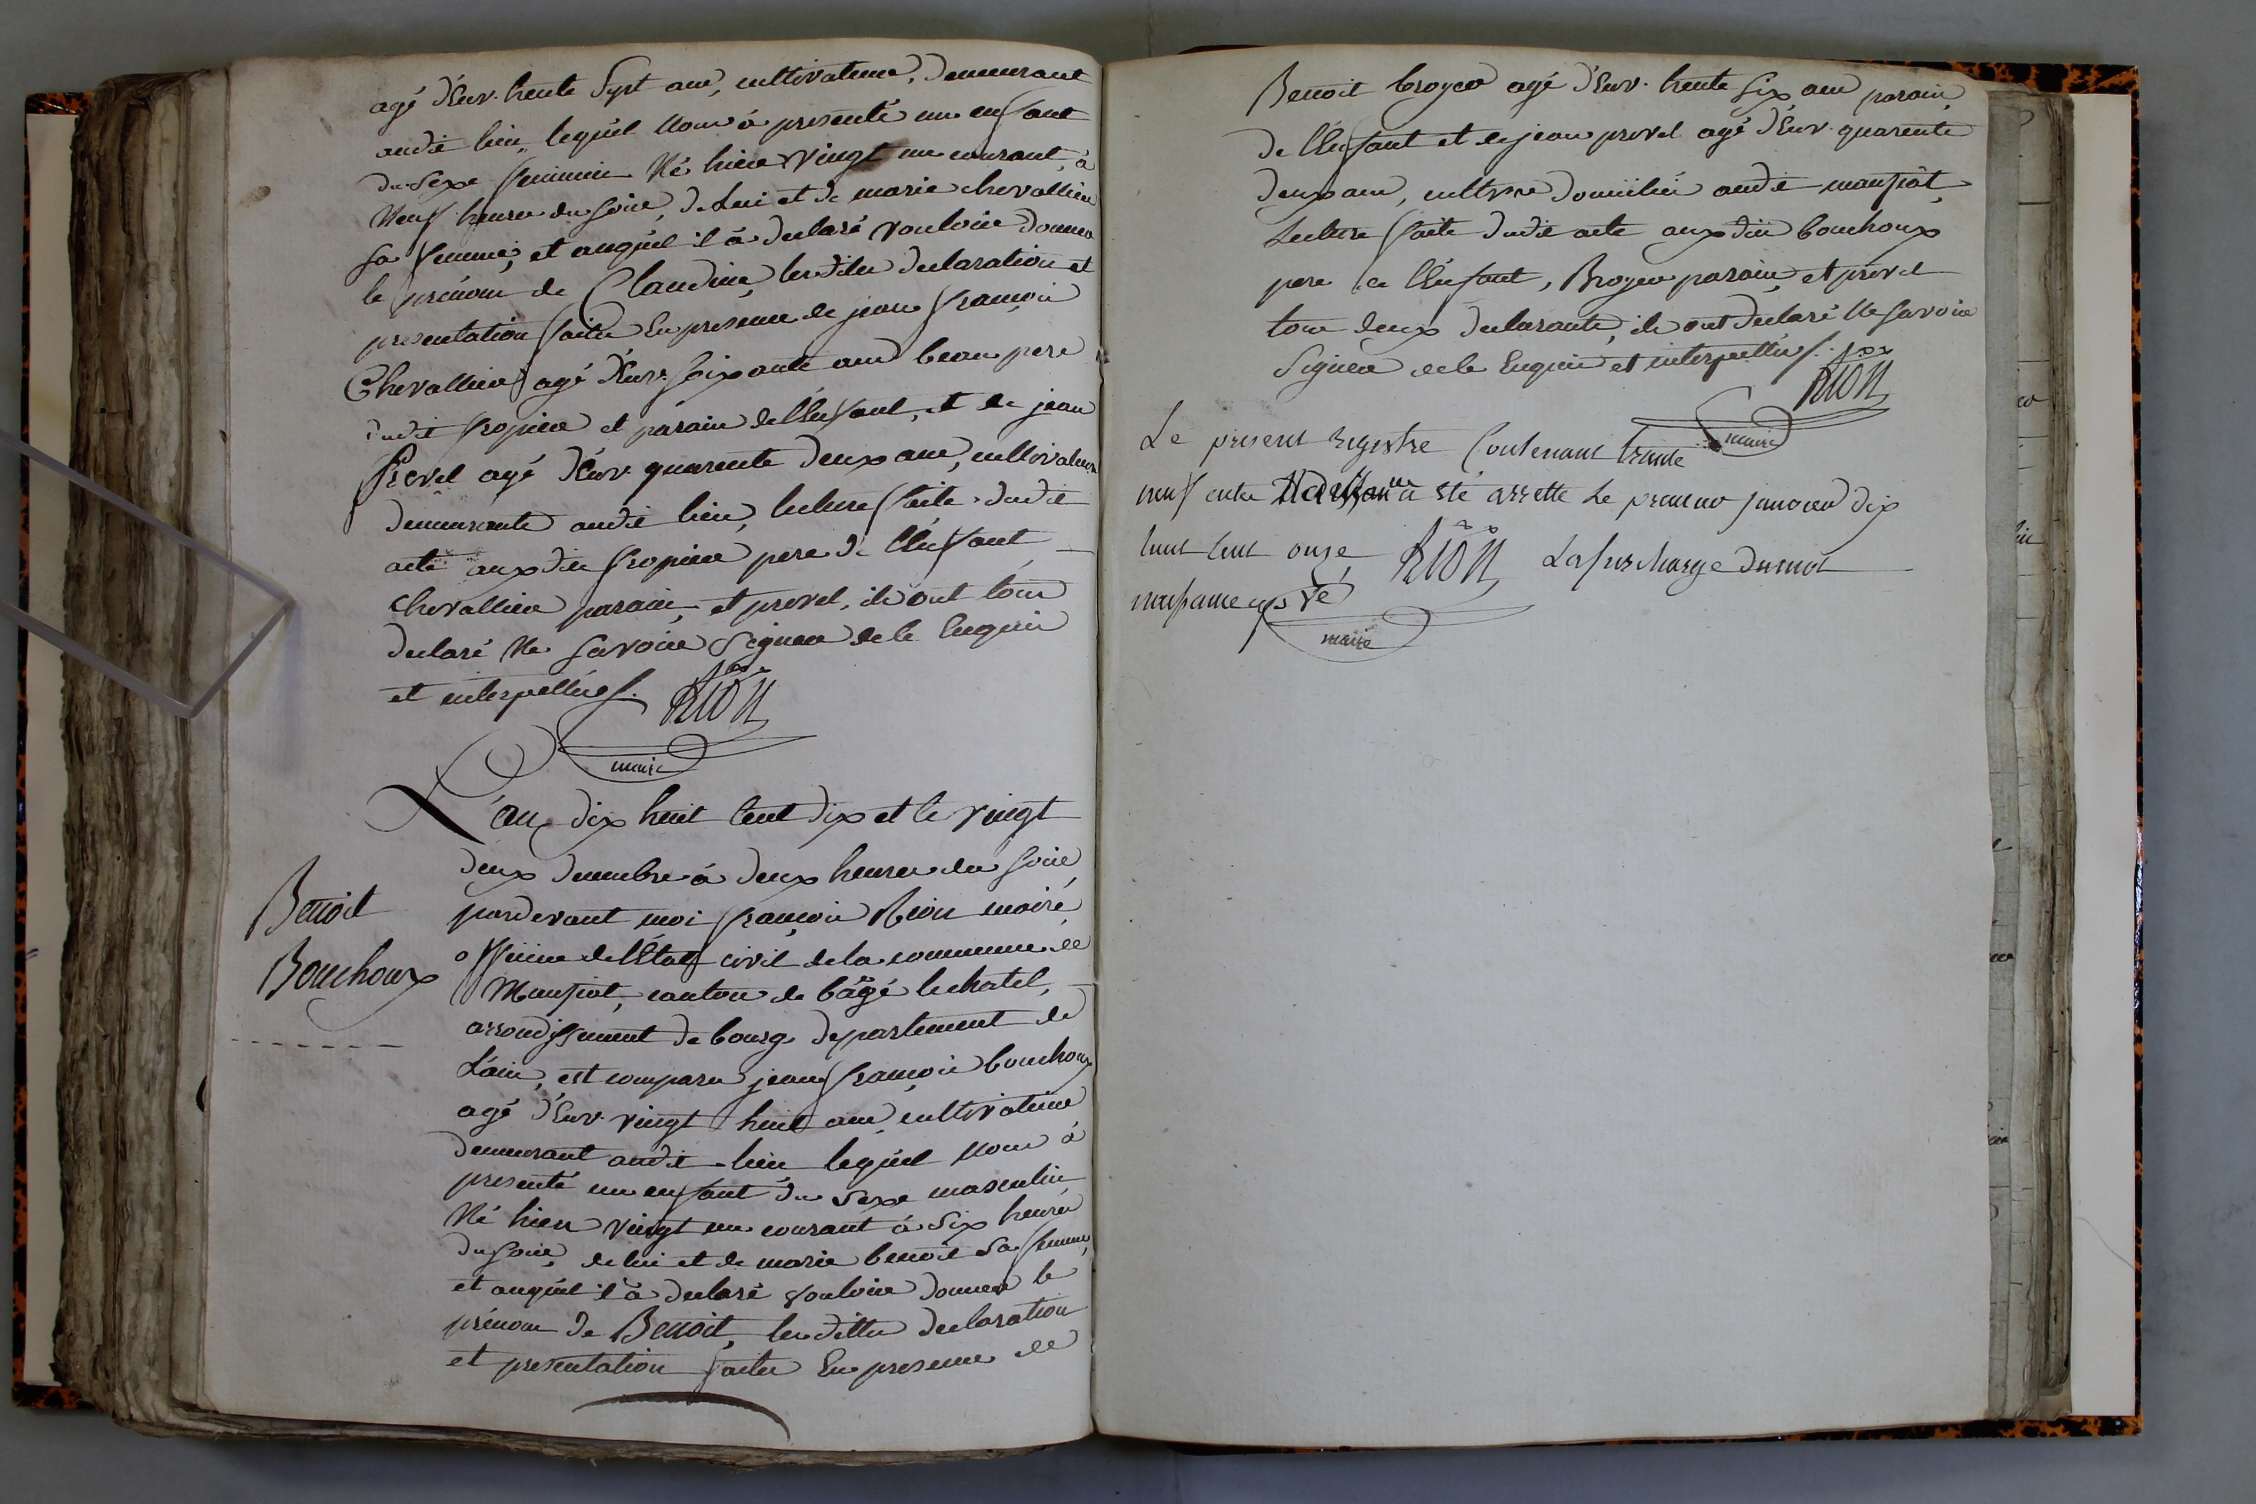 agé d'Env. trente Sept ans, cultivateur, demeurant
audit lieu, lequel nous à presenté un enfant
du Sexe feminin Né hier vingt un courant, à
Neuf heures du soir, de Lui et de marie chevallier
sa femme, et auquel il à declaré vouloir donner
le prénom de Claudine, lesdites declaration et
presentation faites En presence de jean françois
Chevallier agé d'Env. soixante ans beau pere
dudit fropier et parain de l'Enfant, et de jean
Prevel agé d'Env quarente deux ans, cultivateur
demeurants audit lieu, lecture faite dudit
acte auxdits fropier pere de l'Enfant
chevallier parain, et prevel, ils ont tous
declaré Ne savoir Signer de le Enquis
et interpellés.
RION
maire
L'an dix huit cent dix et le vingt
deux decembre à deux heures du soir
pardevant moi françois Rion maire
officier de l'Etat civil de la commune de
Manziat, canton de bâgé le chatel,
arrondissement de bourg departement de
L'ain, est comparu jean françois bouchoux
agé d'Env. vingt huit ans, cultivateur
demeurant audit lieu lequel nous à
presenté un enfant du Sexe masculin
Né hier vingt un courant à Six heures
du soir, de lui et de marie benoit Sa femme,
et auquel il à declaré vouloir donner le
prénom de Benoit, lesdittes declaration
et presentation faites En presence de
Benoit
Bouchoux
Benoit broyer agé d'Env. trente six ans parain
de l'Enfant et de jean prevel agé d'Env. quarente
deux ans, cultvrs domiciliés audit manziat,
Lecture faite dudit acte auxdits bouchoux
pere de l'Enfant, Broyer parain, et prevel
tous deux declarants, ils ont declaré Ne savoir
Signer de le Enquis et interpellés.
RION
maire
Le present registre Contenant trante
neuf actes Naissance a été arretté le premier janvier dix
huit cent onze RION La surcharge du mot
naissance apvé
maire